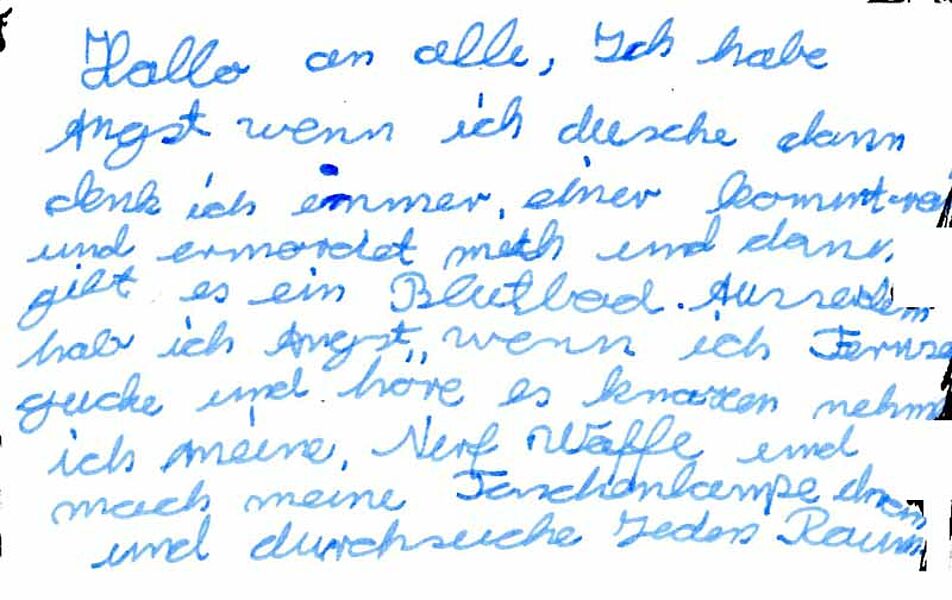 Hallo an alle, Ich habe
Angst wenn ich dusche dann
denk ich immer, einer kommt
und ermordet mich und dann
gibt es ein Blutbad. Ausserdem
hab ich Angst, wenn ich
gucke und höre es knarren
ich meine, Nerf Waffe und
mach meine Taschenlampe
und durchsuche Jeden Raum